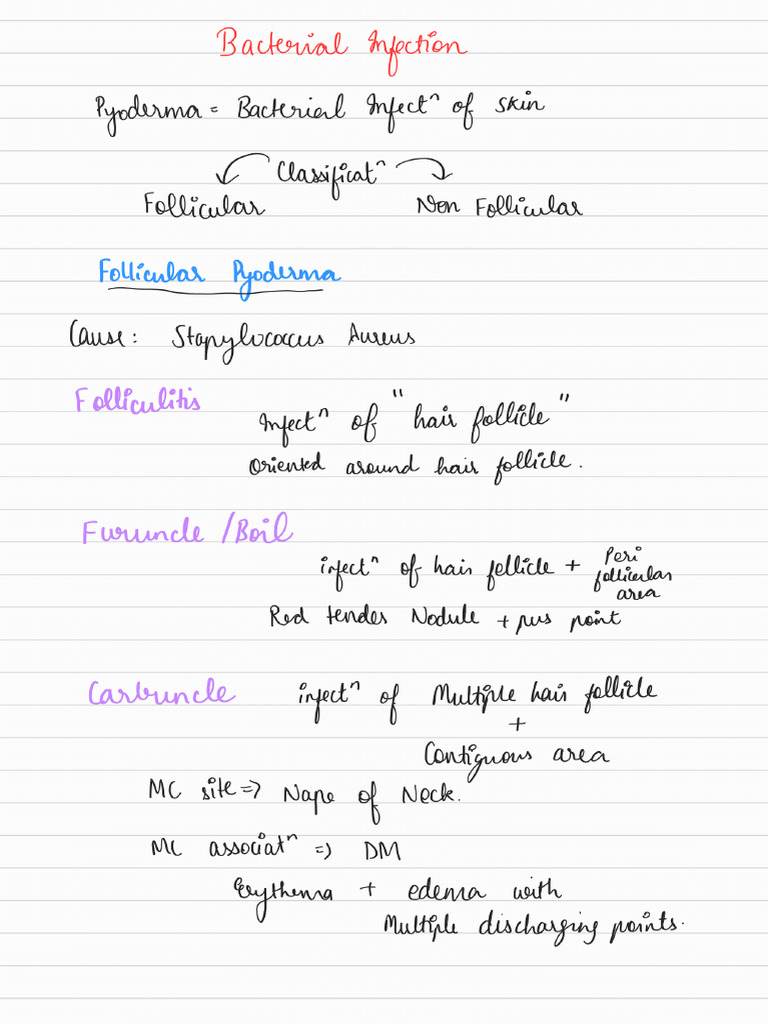 Bacterial Infection
Pyoderma = Bacterial Infectⁿ of skin
Classificatⁿ
Follicular Non Follicular
Follicular Pyoderma
Cause: Stapylococcus Aureus
Folliculitis
Infectⁿ of "hair follicle"
Oriented around hair follicle.
Furuncle /Boil
infectⁿ of hair follicle + Peri follicular area
Red tender Nodule + pus point
Carbuncle infectⁿ of Multiple hair follicle
+
Contiguous area
MC site => Nape of Neck.
MC associatⁿ => DM
Erythema + edema with
Multiple discharging points.